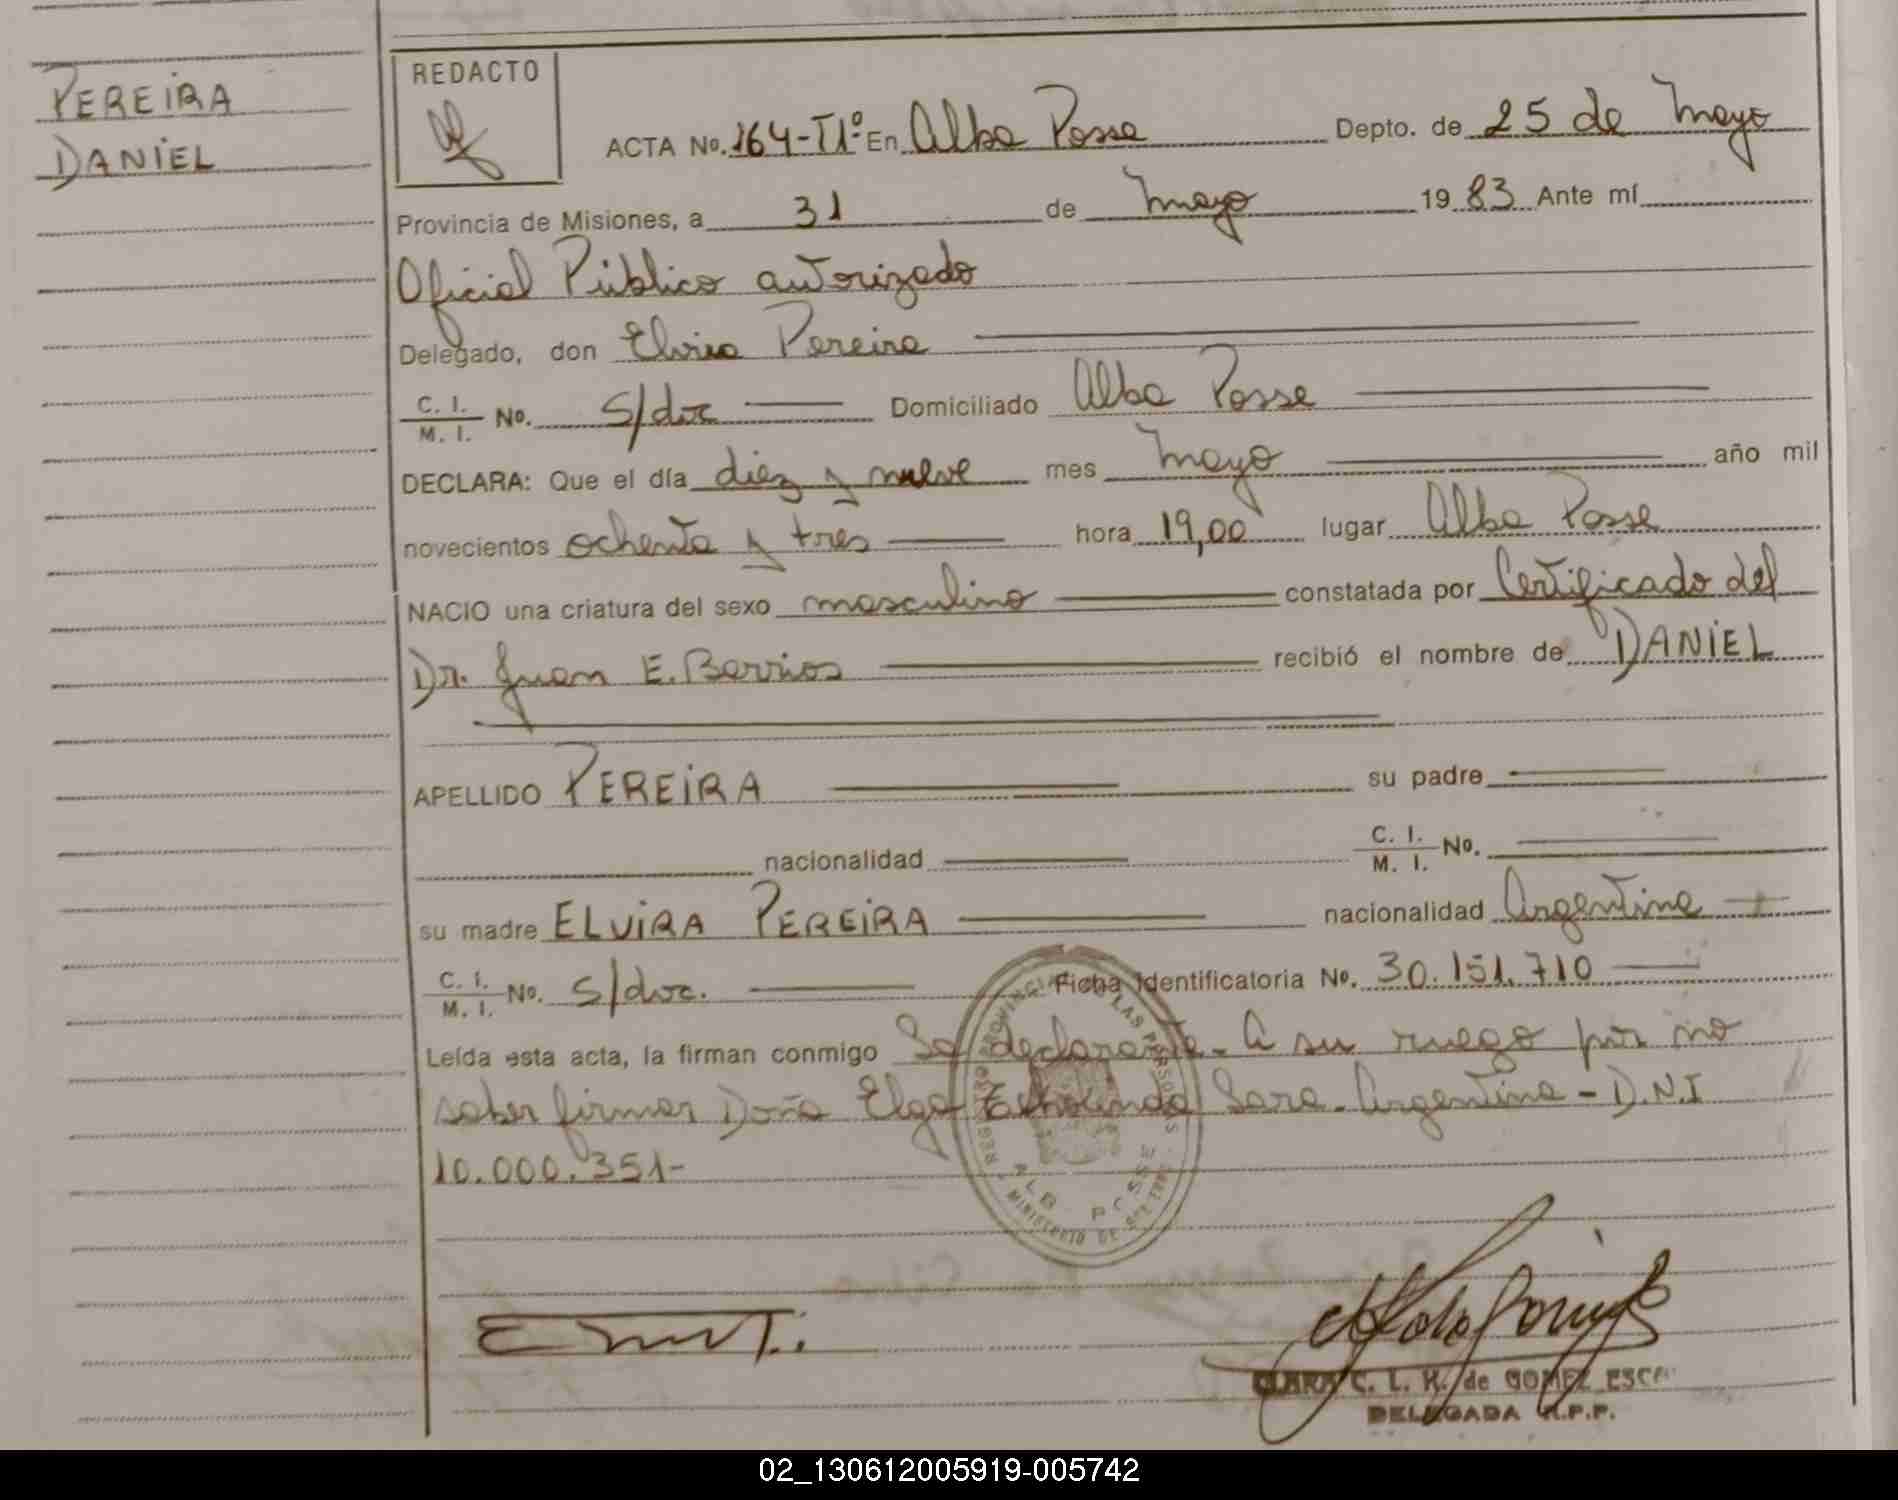 PEREIRA
DANIEL
REDACTO
ACTA No. 164-T1º En Alba Posse Depto. de 25 de Mayo
Provincia de Misiones, a 31 de Mayo 1983 Ante mí
Oficial Público autorizado
Delegado, don Elvira Pereira
C. I. / M. I. No. S/doc Domiciliado Alba Posse
DECLARA: Que el día diez y nueve mes Mayo año mil
novecientos ochenta y tres hora 19,00 lugar Alba Posse
NACIO una criatura del sexo masculino constatada por Certificado del
Dr. Juan E. Barrios recibió el nombre de DANIEL
APELLIDO PEREIRA su padre
nacionalidad C. I. / M. I. No.
su madre ELVIRA PEREIRA nacionalidad Argentina
C. I. / M. I. No. S/doc. Ficha Identificatoria No. 30.151.710
Leída esta acta, la firman conmigo La declarante - A su ruego por no
saber firmar Doña Elga Lara - Argentina - D.N.I
10.000.351-
CLARA C. L. K. de GOMEZ
DELEGADA R.P.P.
02_130612005919-005742